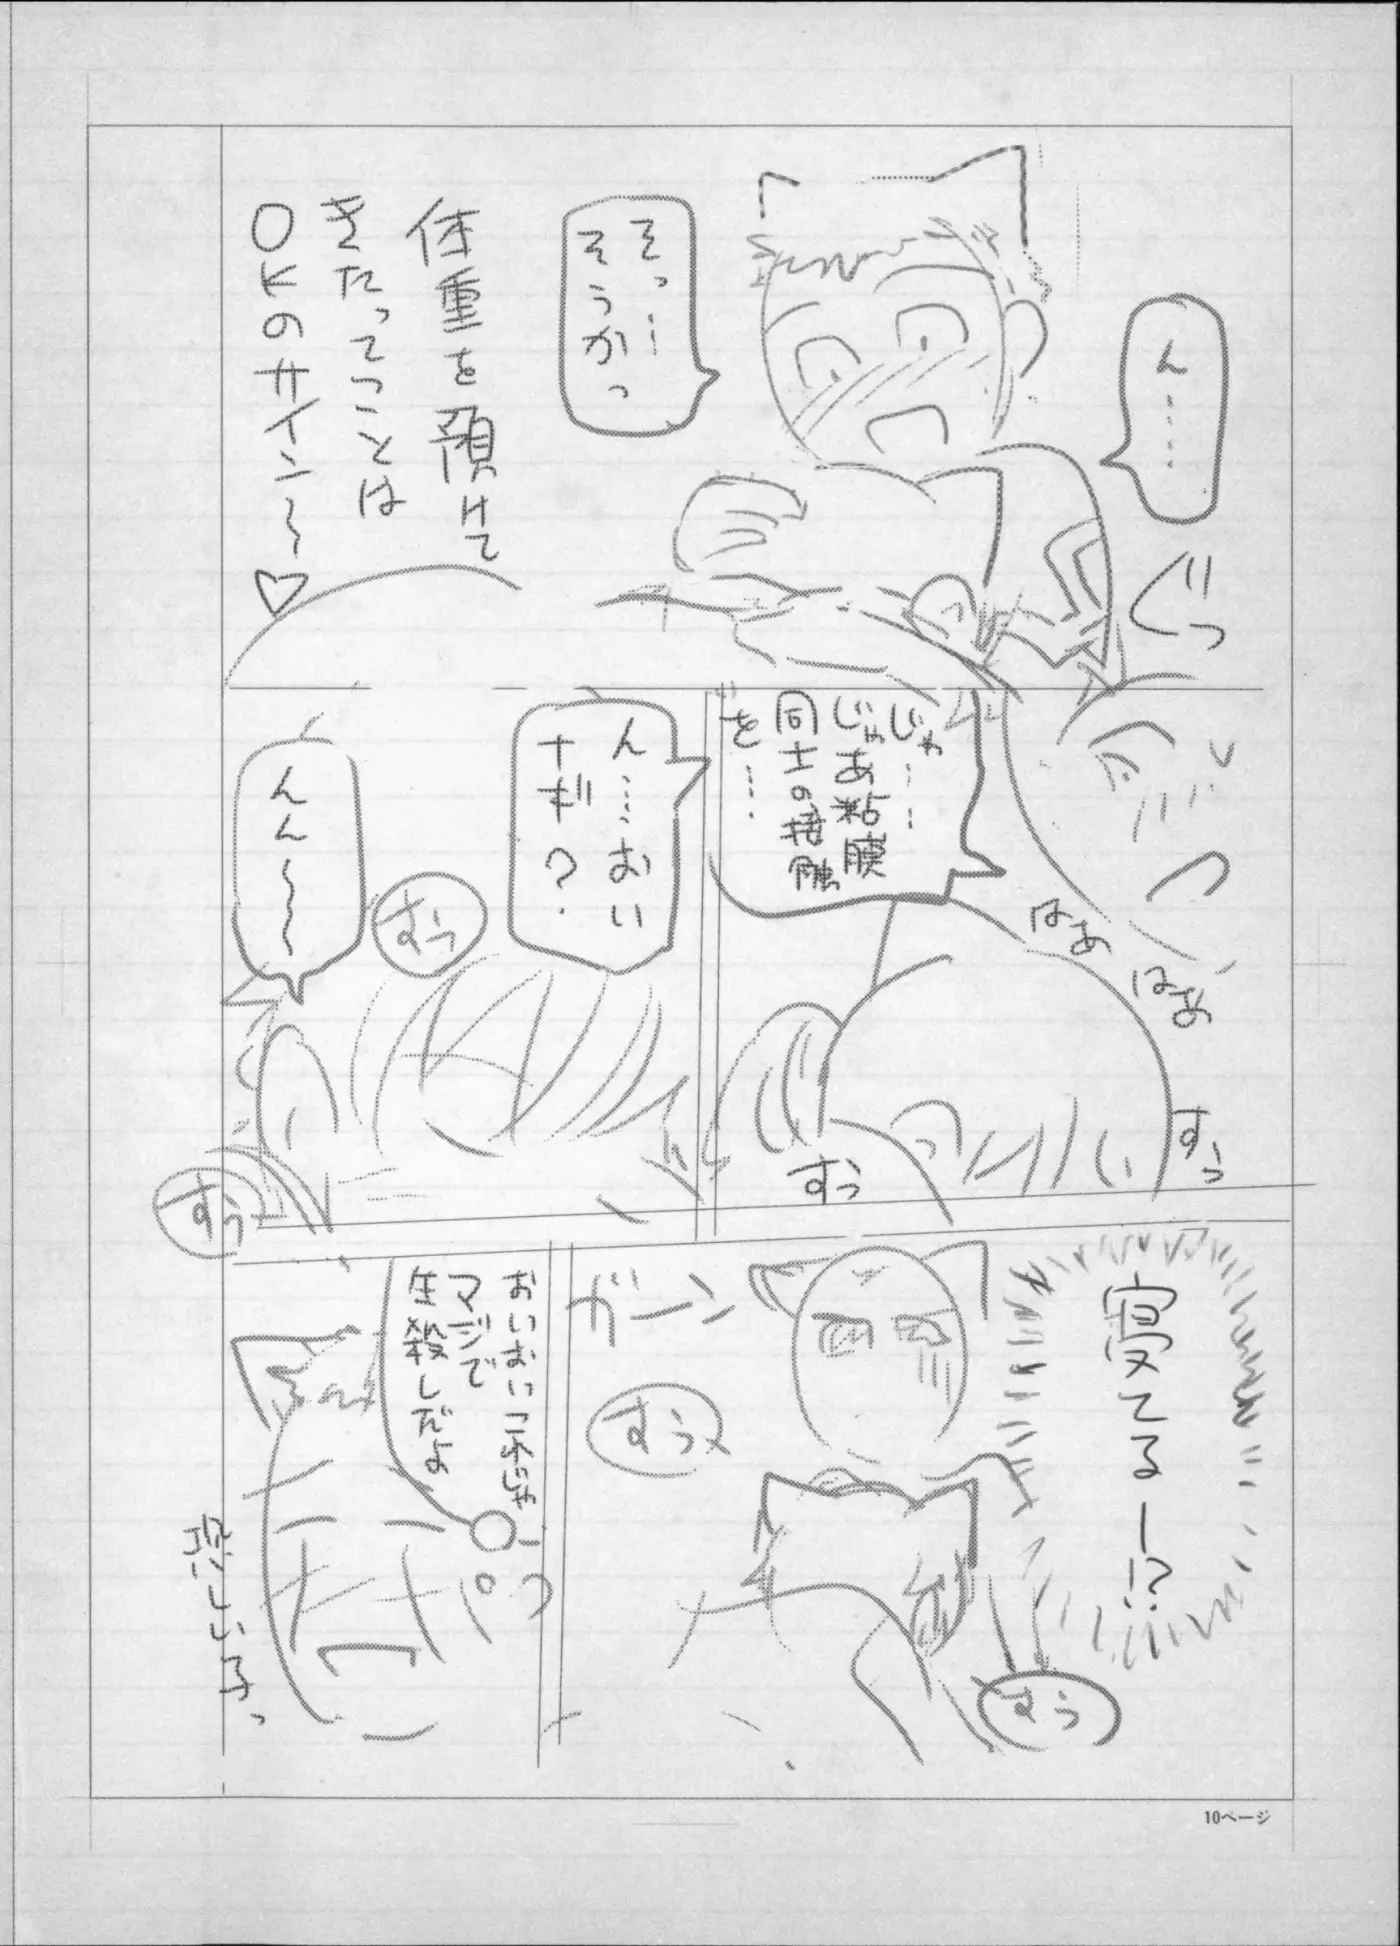 ん……
ぐっ
そっ…
そうかっ
体重を預けて
きたってことは
OKのサイン～
じゃ……
じゃあ粘膜
同士の接触
を……
はあ
はあ
すっ
すっ
ん……おい
ナギ？
すぅ
んん～～
すぅ
寝てるー!?
ガーン
すぅ
すぅ
おいおいこれじゃ
マジで
生殺しだよ
恐しい子っ
10ページ